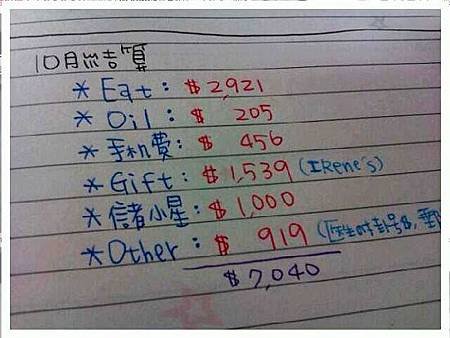 10月結算
* Eat : $2,921
* Oil : $ 205
* 手机費 : $ 456
* Gift : $1,539 (IRene's)
* 儲小星 : $1,000
* Other : $ 919 (医生掛号$, 郵
$7,040